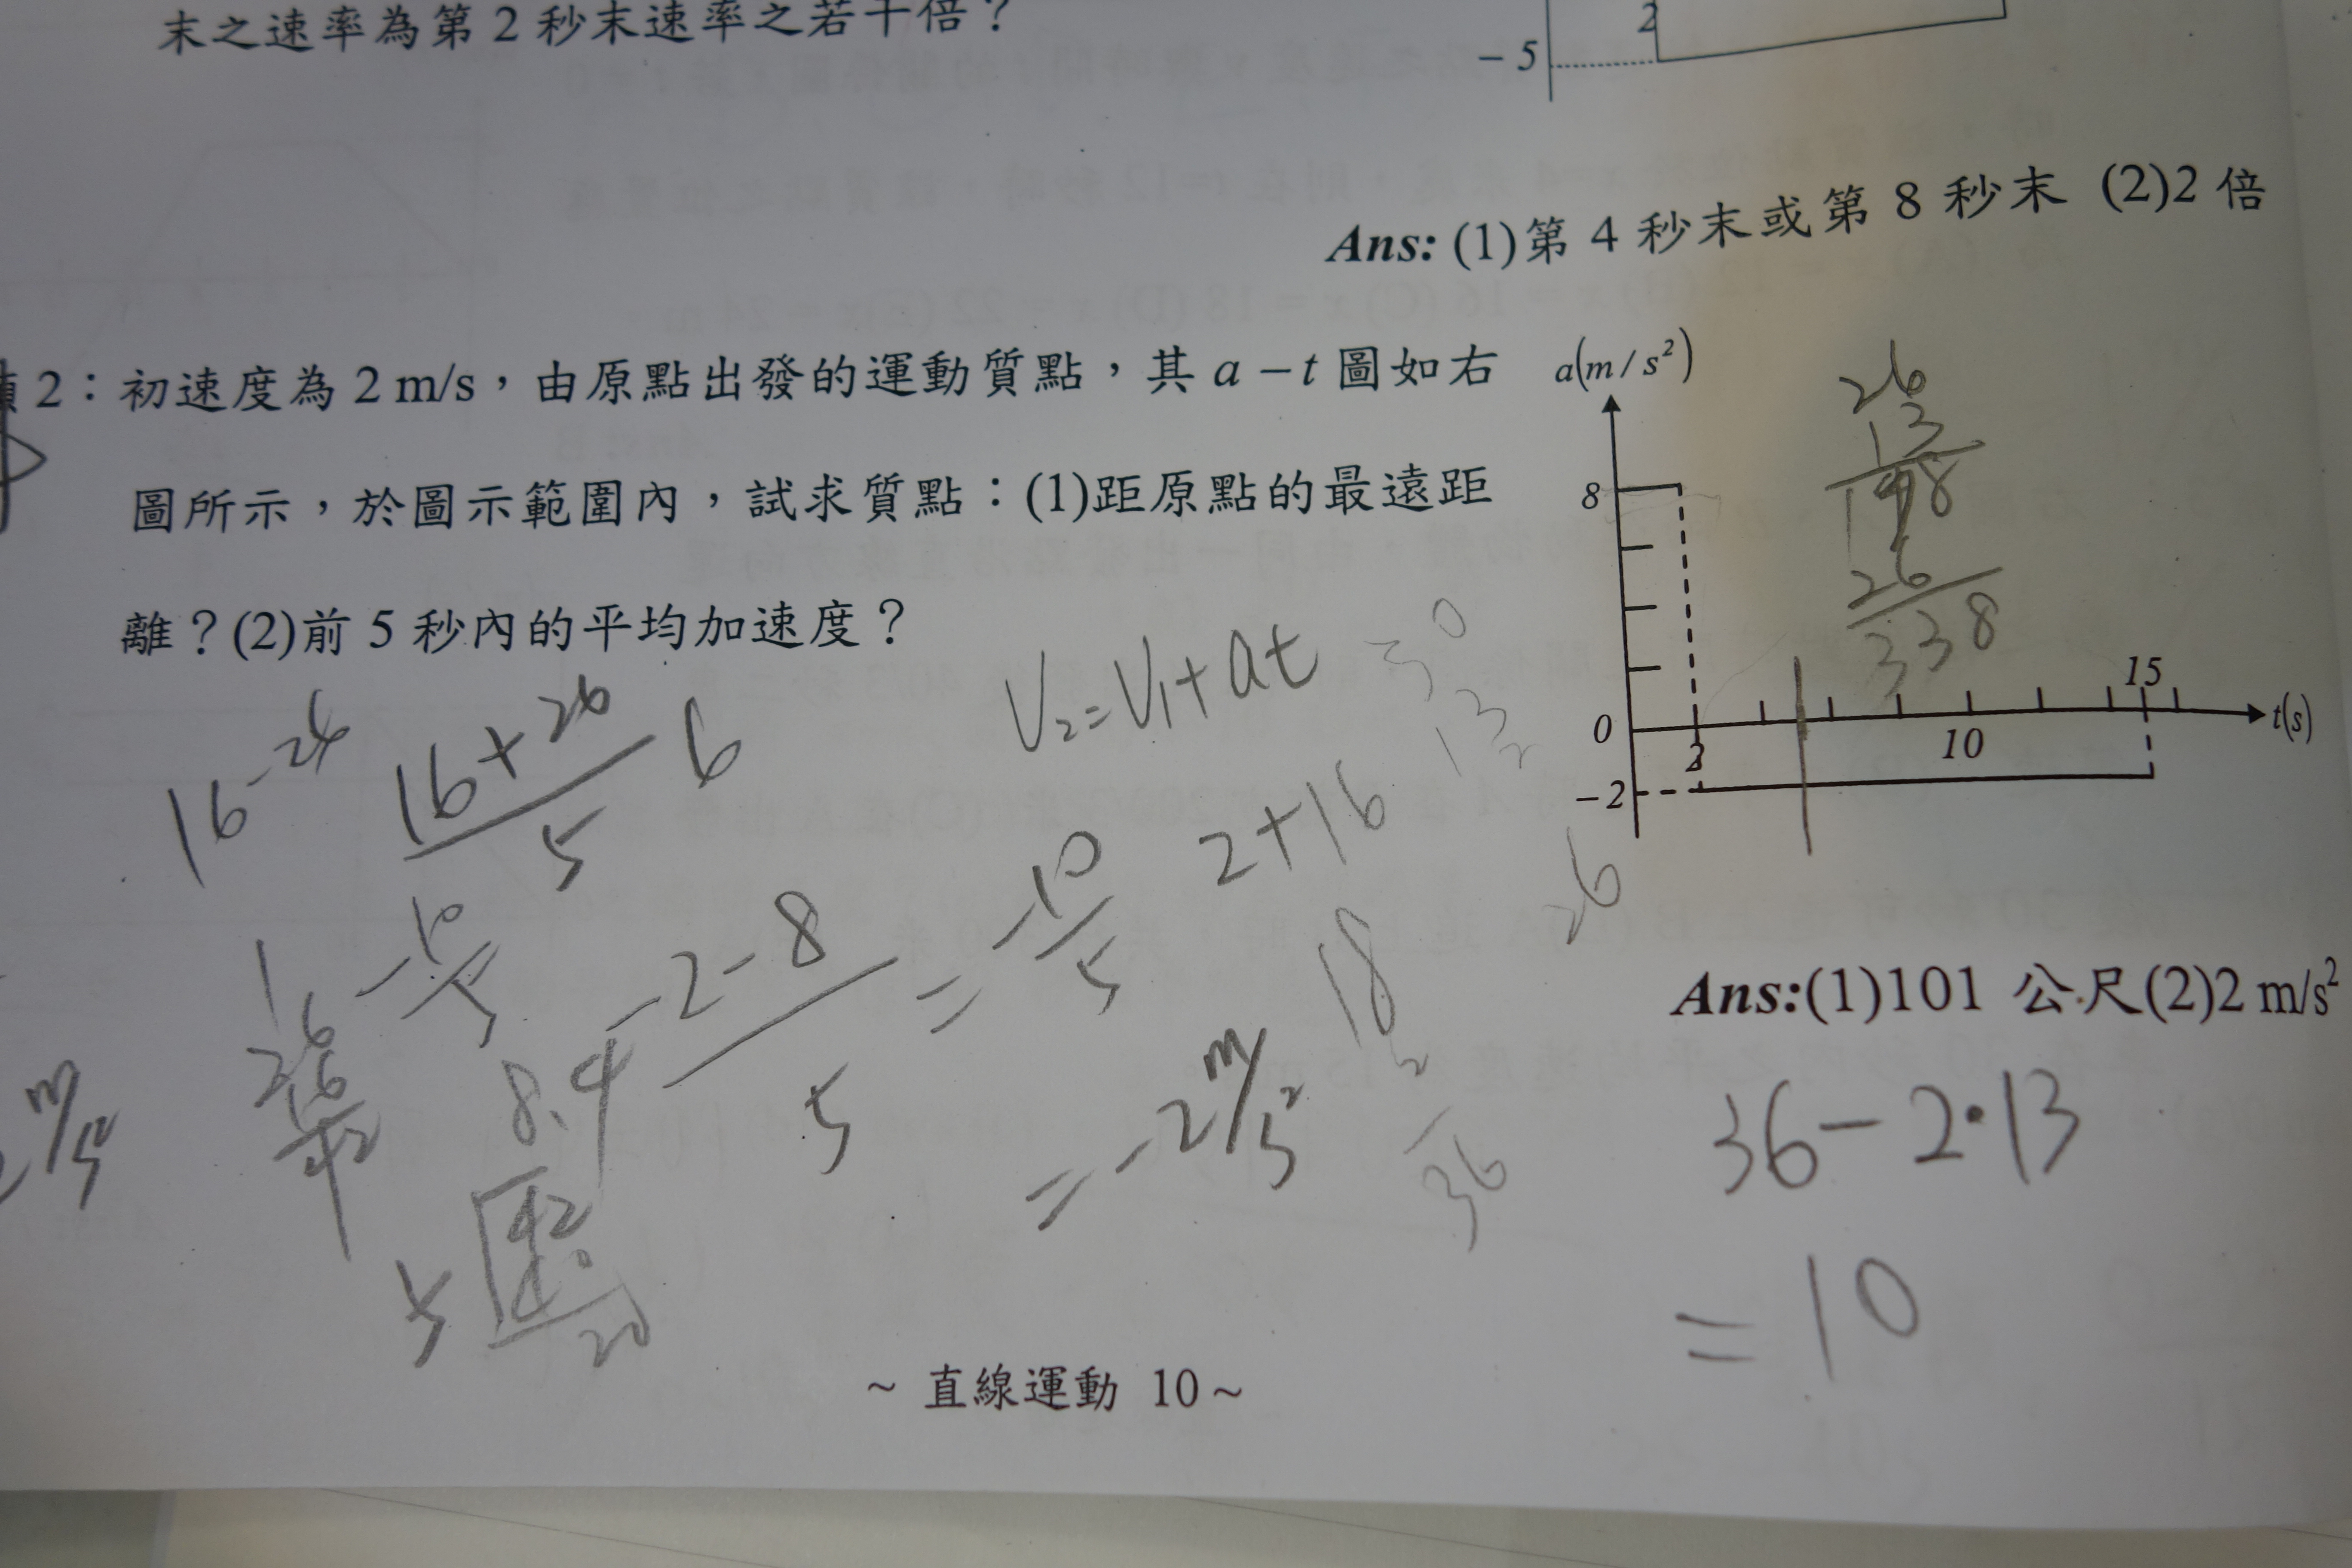 末之速率為第 2 秒末速率之若干倍？
2
-5
Ans: (1)第 4 秒末或第 8 秒末 (2)2 倍
2：初速度為 2 m/s，由原點出發的運動質點，其 a－t 圖如右
圖所示，於圖示範圍內，試求質點：(1)距原點的最遠距
離？(2)前 5 秒內的平均加速度？
a(m/s²)
8
0
2
10
15
t(s)
-2
26
13
26
338
V₂=V₁+at
30
13
2
16-24
16+26
5
6
2+16
18
2
36
26
-10
5
-2-8
5
=
-10
5
=-2 m/s²
8.4
5
42
20
16
26
42
m/s²
Ans:(1)101 公尺(2)2 m/s²
36-2·13
=10
~ 直線運動 10 ~